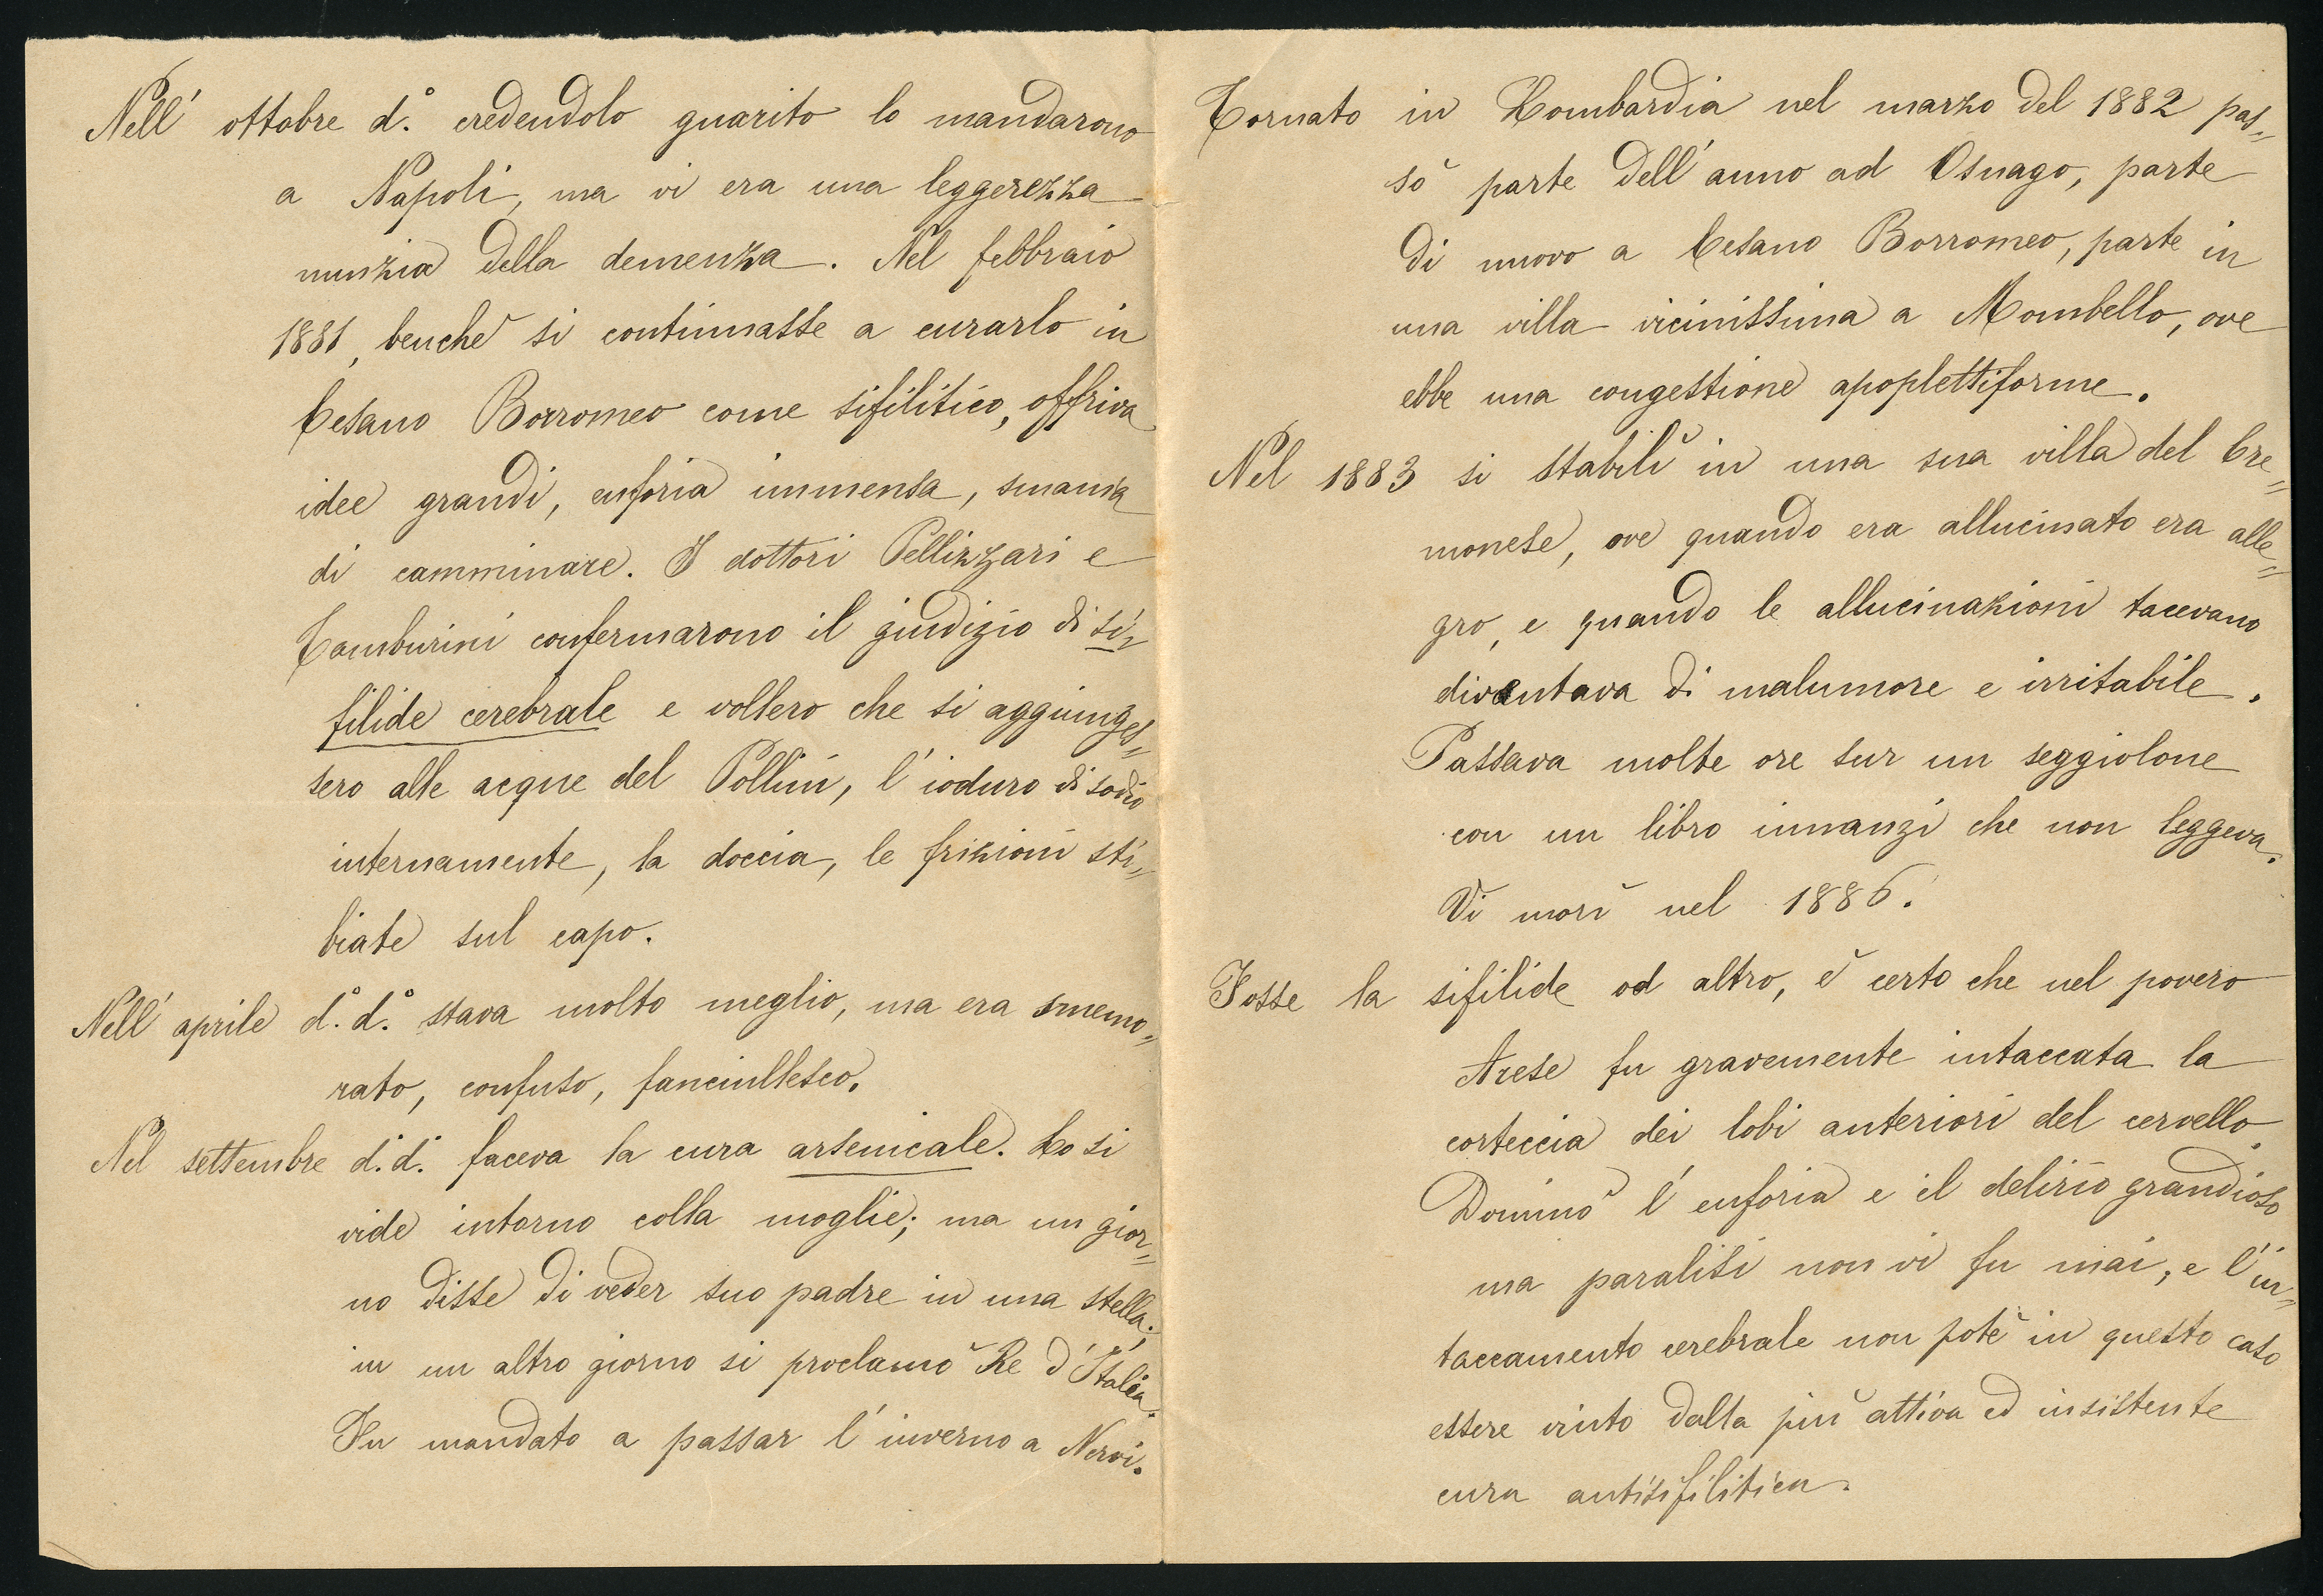 Nell' ottobre d.° credendolo guarito lo mandarono
a Napoli, ma vi era una leggerezza
nunzia della demenza. Nel febbraio
1881, benchè si continuasse a curarlo in
Cesano Borromeo come sifilitico, offriva
idee grandi, euforia immensa, smania
di camminare. I dottori Pellizzari e
Tamburini confermarono il giudizio di si=
filide cerebrale e vollero che si aggiunges=
sero alle acque del Pollini, l'ioduro di sodio
internamente, la doccia, le frizioni sti=
biate sul capo.
Nell' aprile d.° d.° stava molto meglio, ma era smemo=
rato, confuso, fanciullesco.
Nel settembre d.° d.° faceva la cura arsenicale. Lo si
vide intorno colla moglie; ma un gior=
no disse di veder suo padre in una stella;
in un altro giorno si proclamò Re d'Italia.
Fu mandato a passar l'inverno a Nervi.
Tornato in Lombardia nel marzo del 1882 pas=
sò parte dell'anno ad Osnago, parte
di nuovo a Cesano Borromeo, parte in
una villa vicinissima a Mombello, ove
ebbe una congestione apoplettiforme.
Nel 1883 si stabilì in una sua villa del Cre=
monese, ove quando era allucinato era alle=
gro, e quando le allucinazioni tacevano
diventava di malumore e irritabile.
Passava molte ore sur un seggiolone
con un libro innanzi che non leggeva.
Vi morì nel 1886.
Fosse la sifilide od altro, è certo che nel povero
Arese fu gravemente intaccata la
corteccia dei lobi anteriori del cervello.
Dominò l'euforia e il delirio grandioso
ma paralisi non vi fu mai, e l'in=
taccamento cerebrale non potè in questo caso
essere vinto dalla più attiva ed insistente
cura antisifilitica.